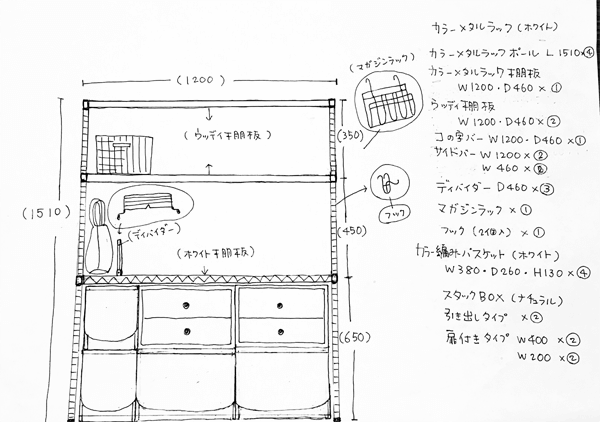 カラーメタルラック(ホワイト)
カラーメタルラックポール L1510×④
カラーメタルラック棚板
W1200・D460×①
ウッディ棚板
W1200・D460×②
コの字バー W1200・D460×①
サイドバー W1200×②
W460×②
ディバイダー D460×③
マガジンラック×①
フック(2個入)×①
カラー編みバスケット(ホワイト)
W380・D260・H130×④
スタックBOX(ナチュラル)
引き出しタイプ ×②
扉付きタイプ W400×②
W200×②
(マガジンラック)
(1200)
(ウッディ棚板)
(350)
(1510)
フック
(ディバイダー)
(450)
(ホワイト棚板)
(650)